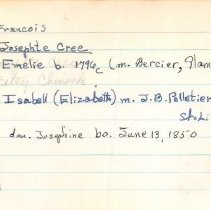 Francois
Josephte Cree
Emelie b. 1796c (m. Bercier, Alam
Betsy
Isabell (Elizabeth) m. J.B. Pelletier
St. Li
dau. Josephine bo. June 13, 1850